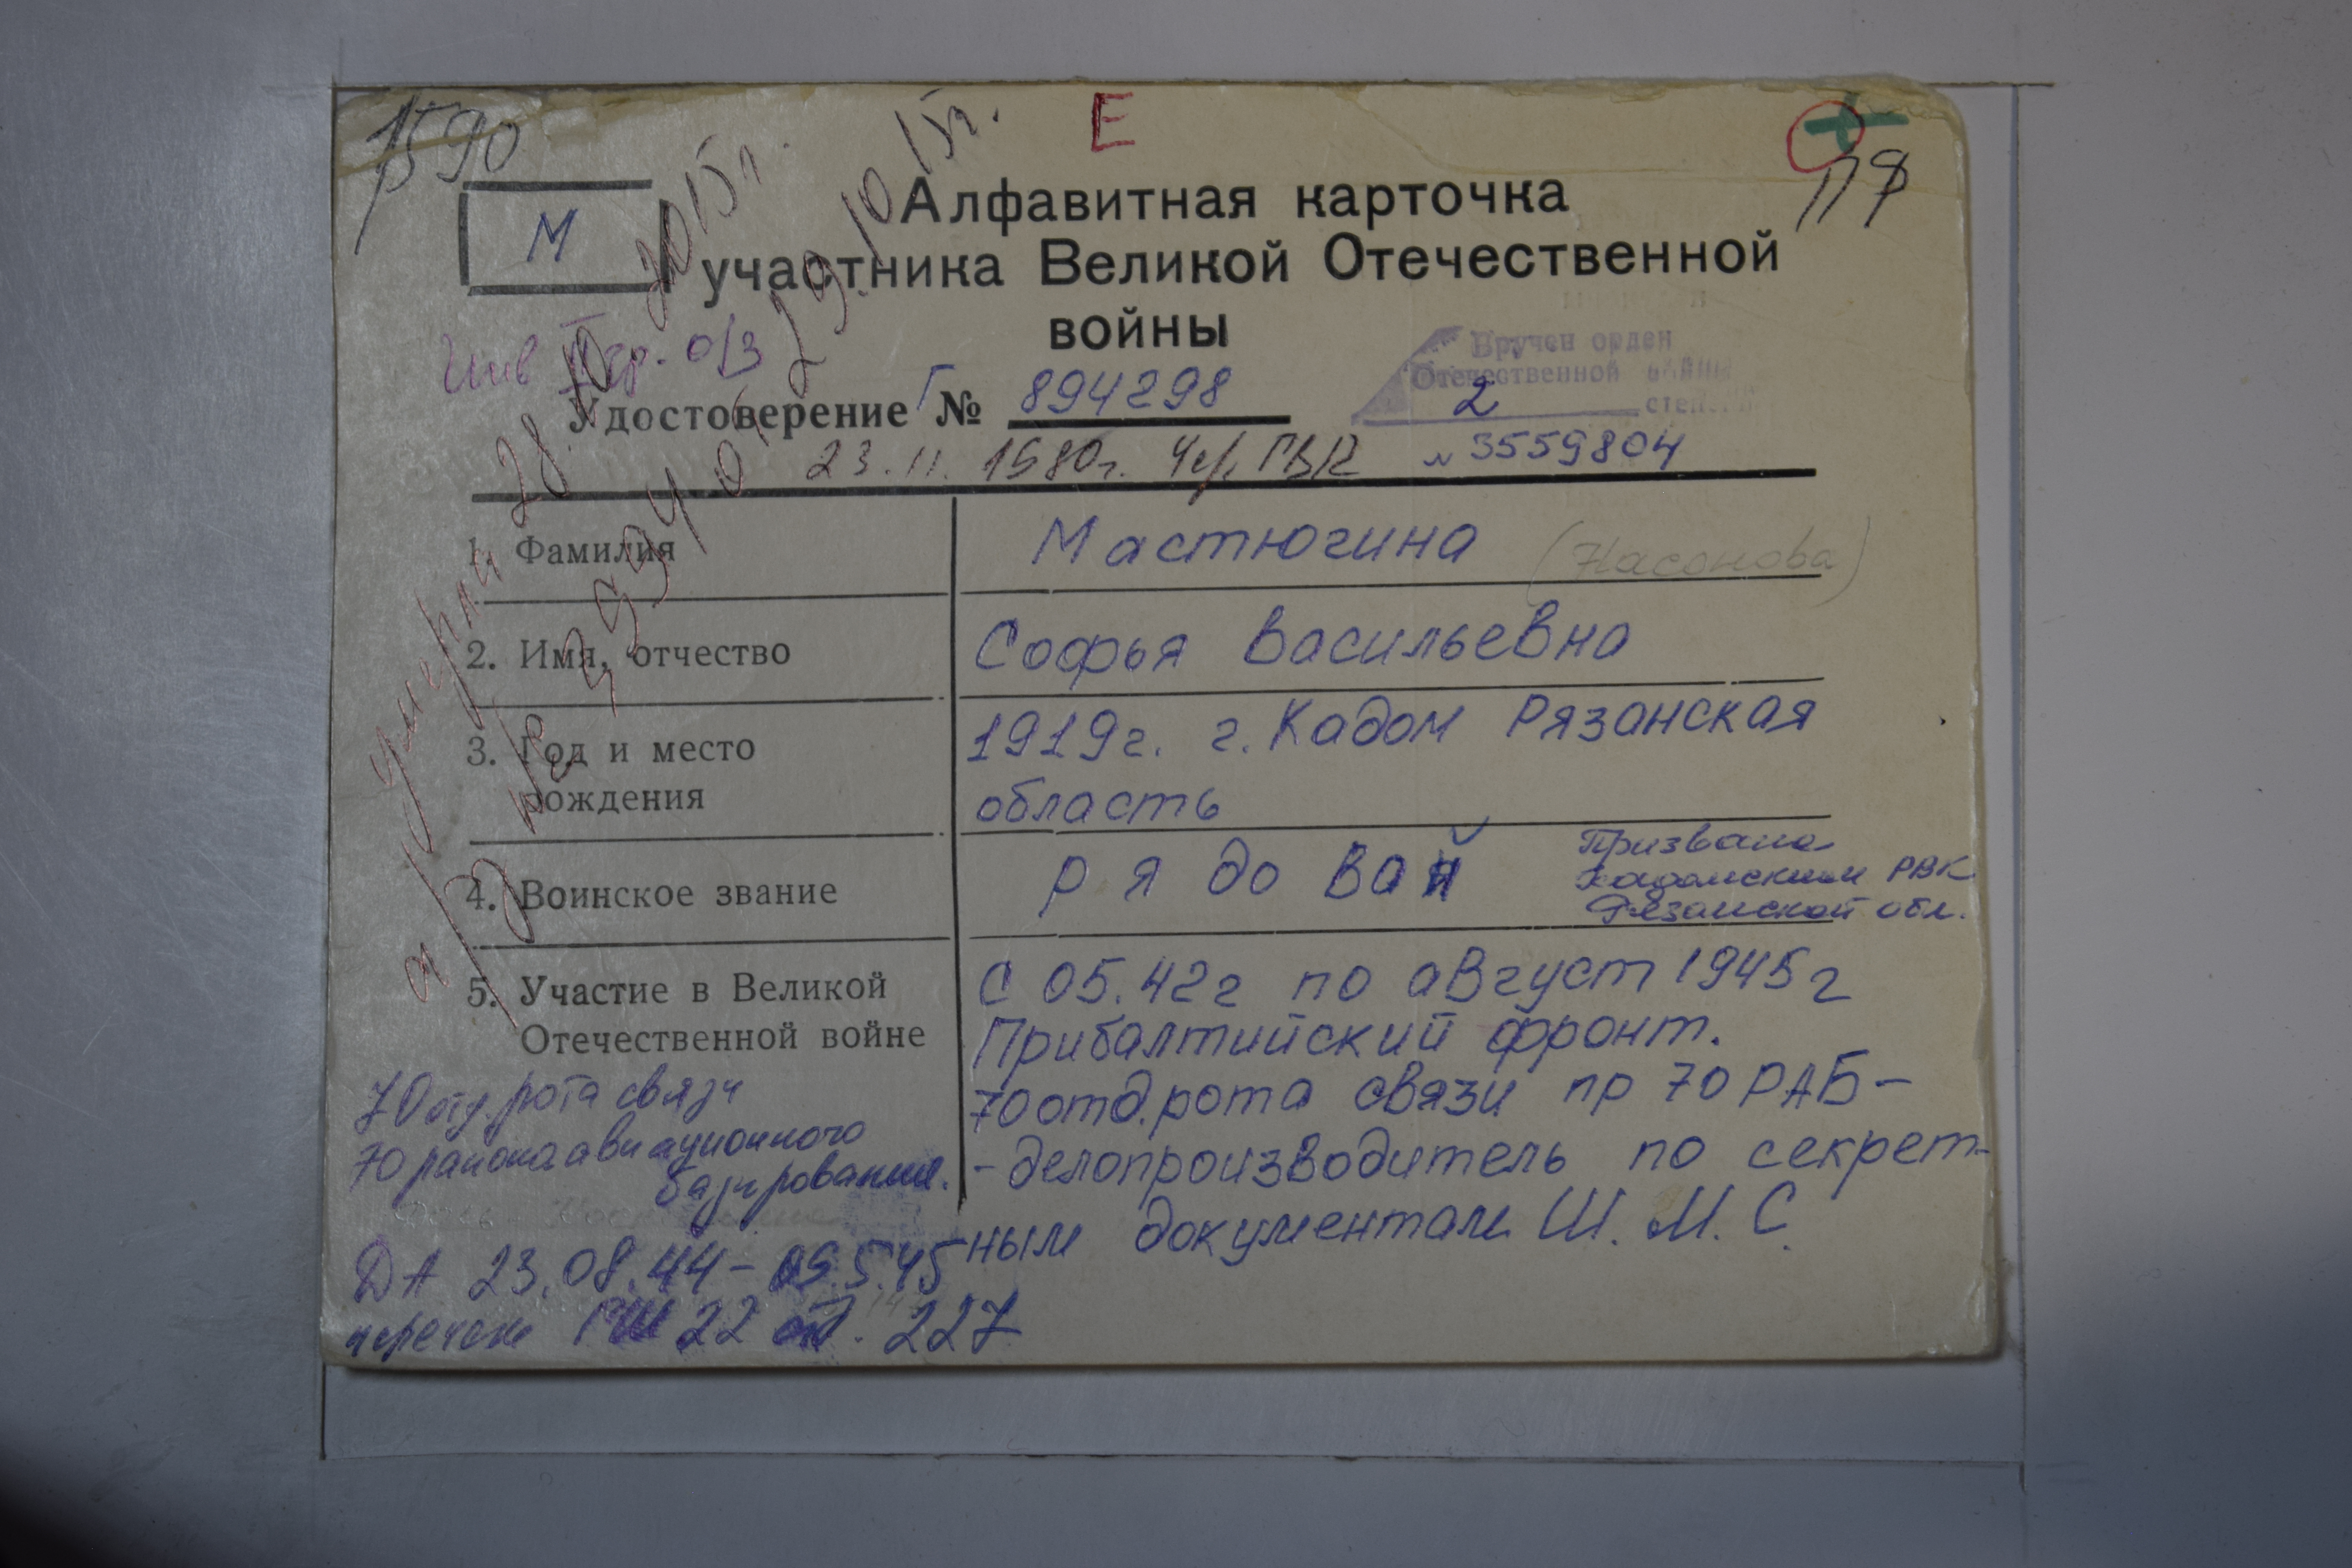 1590
Е
П9
М
Алфавитная карточка
участника Великой Отечественной
войны
Инв II гр. о/з
Вручен орден
Отечественной войны
2 степени
Удостоверение Г № 894298
23.11.1980г. Чер. ГВК № 3559804
умерла 28.10.2015г.
а/з № 9994 от 29.10.15г.
1. Фамилия Мастюгина (Насонова)
2. Имя, отчество Софья Васильевна
3. Год и место рождения 1919г. г. Кадом Рязанская
область
4. Воинское звание рядовой
Призвана
Кадомским РВК
Рязанской обл.
5. Участие в Великой
Отечественной войне
С 05.42г по август 1945г
Прибалтийский фронт.
70 отд. рота связи пр 70 РАБ-
-делопроизводитель по секрет-
ным документам Ш. М. С.
70 отд. рота связи
70 района авиационного
базирования.
ДА 23.08.44-09.5.45
перечень ГШ 22 227